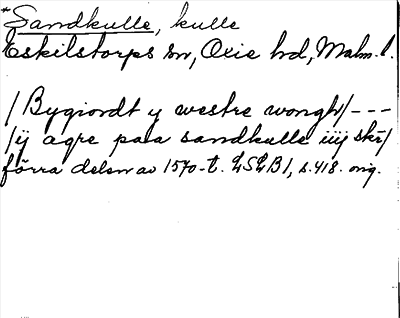 *Sandkulle, kulle
Eskilstorps sn, Oxie hd, Malm. l.
/Bygiordt y westre wongh/---
/ij agre paa sandkulle iiij skr/
förra delen av 1570-t. LSLB1, s.418. orig.